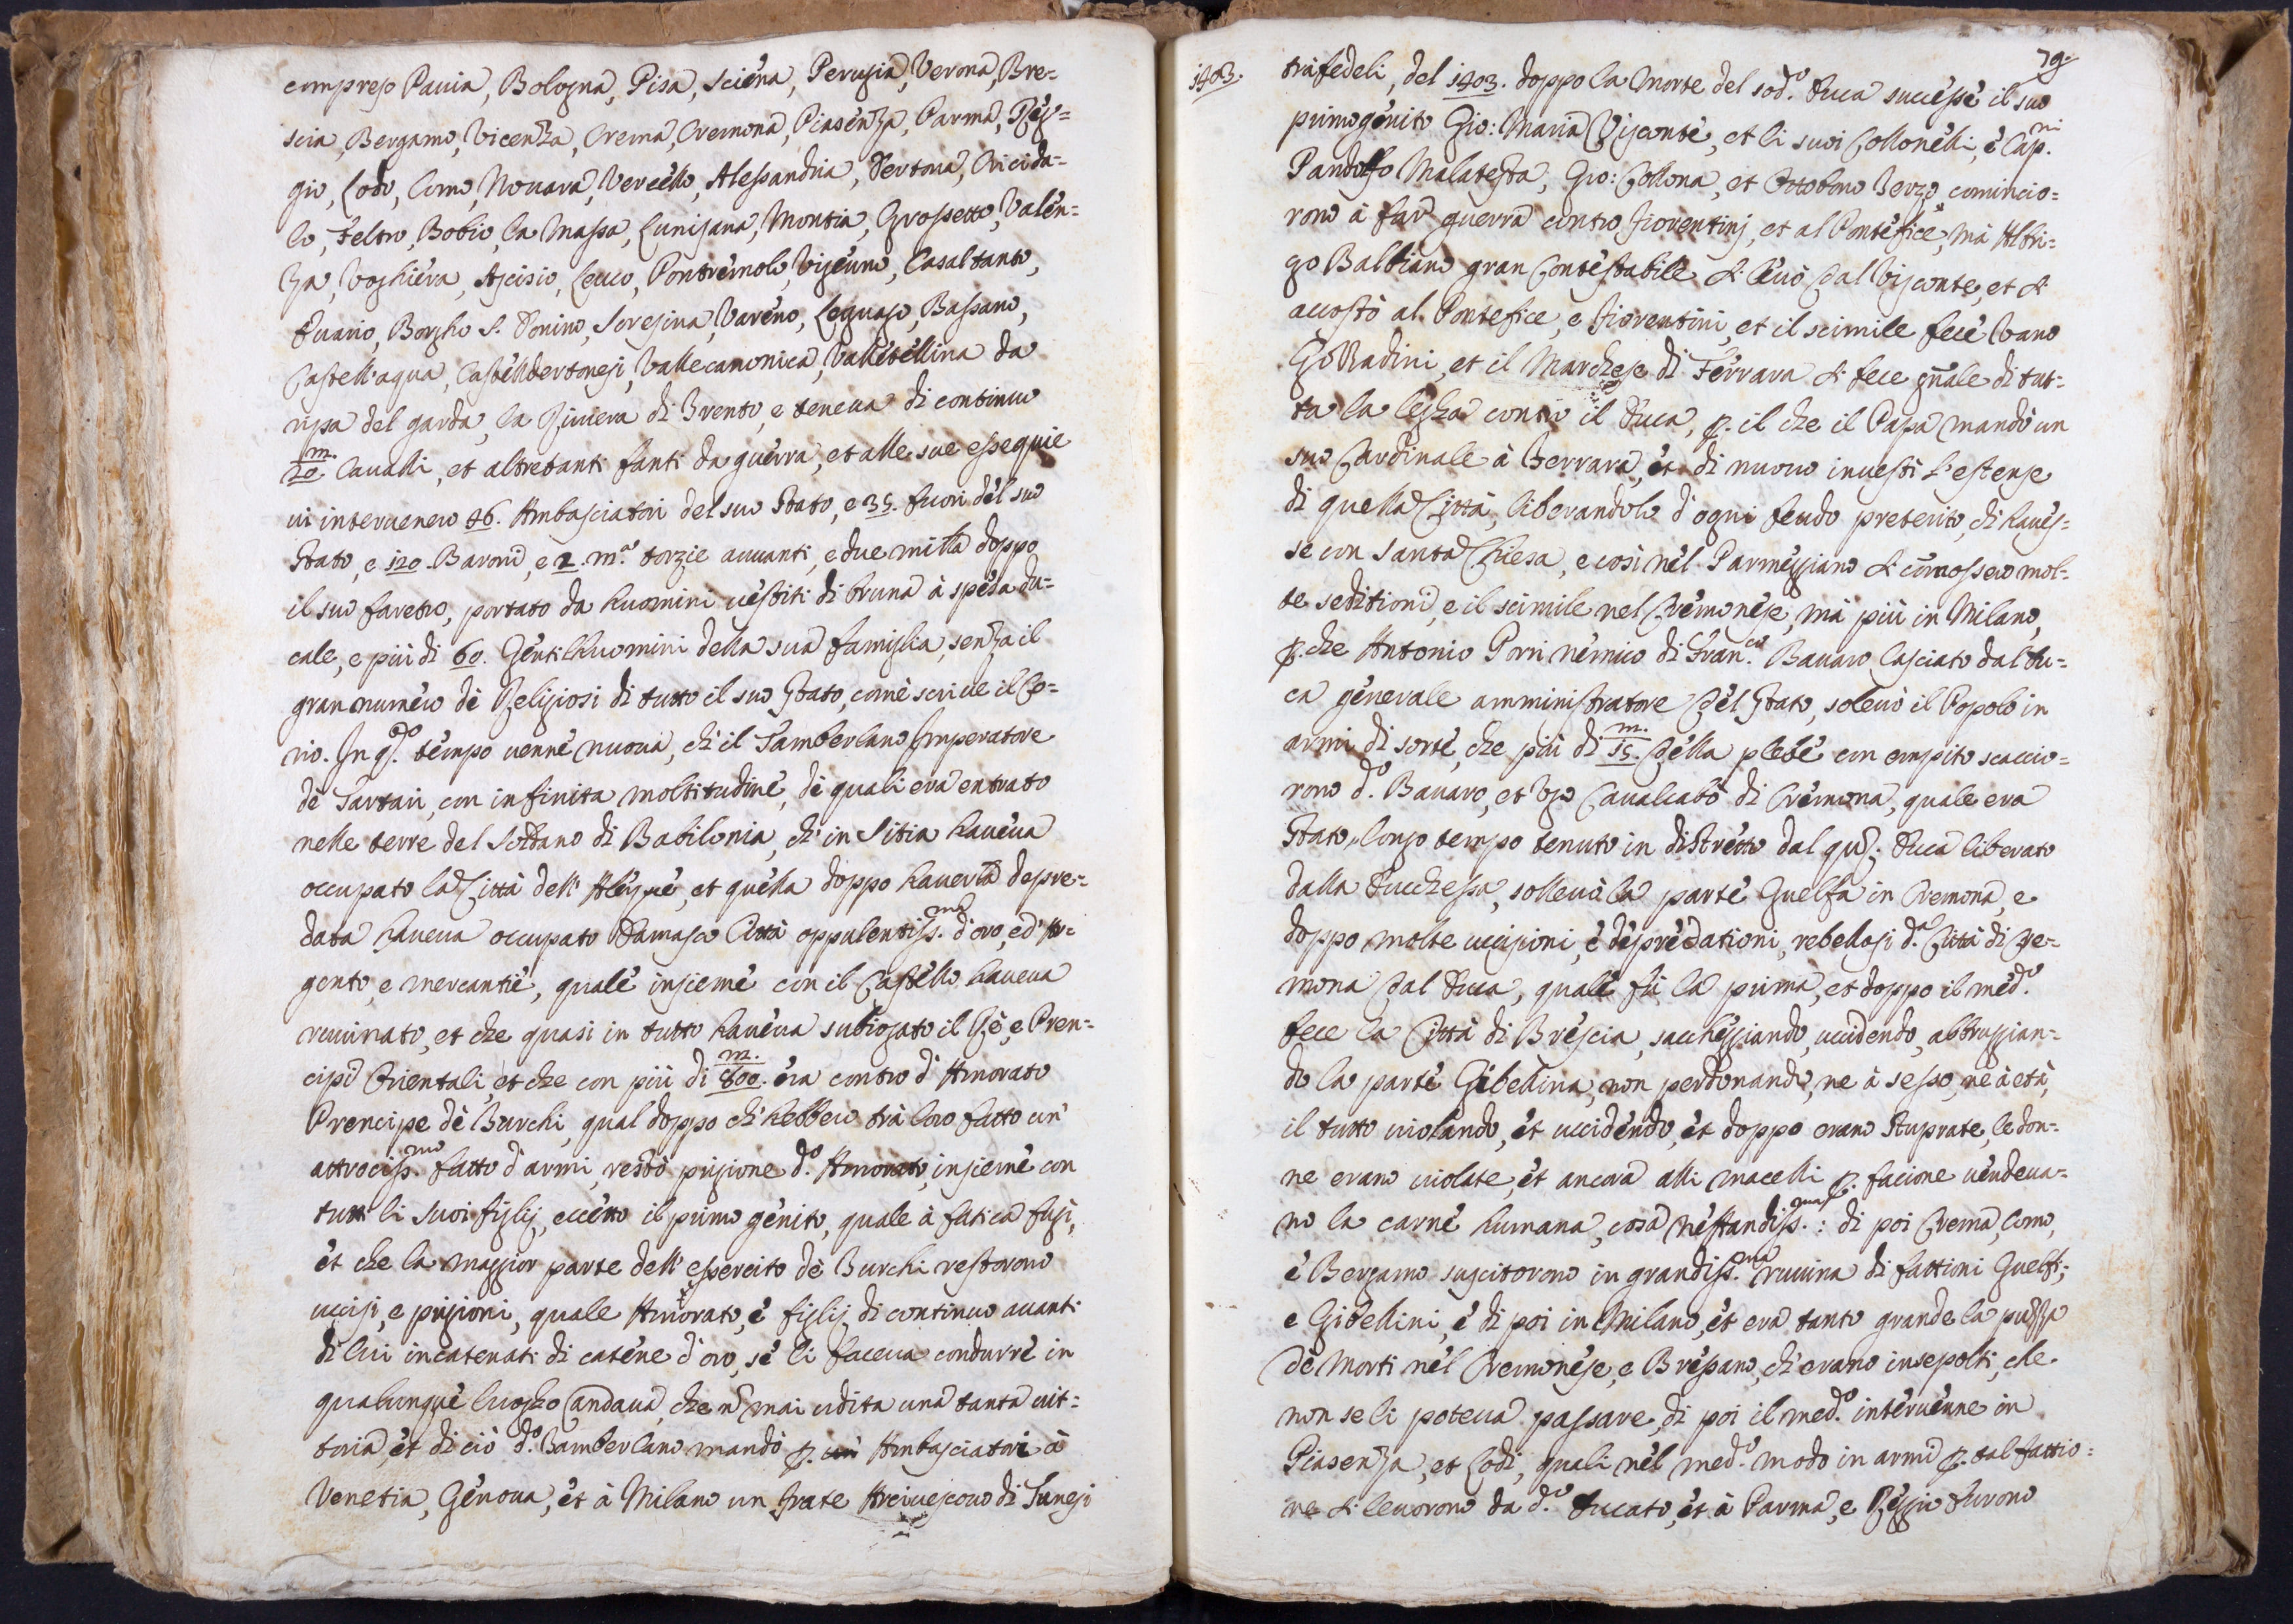 compreso Pauia, Bologna, Pisa, Sciena, Perugia, Verona, Bre=
scia, Bergamo, Vicenza, Crema, Cremona, Piasenza, Parma, Reg=
gio, Lodo, Como, Nouara, Vercello, Alessandria, Tertona, Ciuida=
lo, Feltro, Bobio, la Massa, Lunisana, Montia, Grossetto, Valen=
za, Voghiera, Ascisio, Lecco, Pontremolo, Vigeuno, Casal tanto,
Duario, Borgho S. Donino, Soresina, Vareno, Legnago, Bassano,
Castell'aqua, Castelldertonesi, Vallecamonica, Valletellina da
ripa del garda, la Riuiera di Brento, e teneua di continuo
20.m. Caualli, et altretanti fanti da guerra, et alle sue essequie
ui interuenero 46. Ambasciatori del suo Stato, e 35. fuori del suo
Stato, e 120. Baroni, e 2. m.a torzie auuanti, e due milla doppo
il suo faretro, portato da huomini uestiti di bruna à spesa du=
cale, e più di 60. Gentilhuomini della sua famiglia, senza il
gran numero de Religiosi di tutto il suo Stato, come scriue il Co=
rio. In q.do tempo uenne nuoua, ch'il Tamberlano Imperatore
de Tartari, con infinita moltitudine, de quali era entrato
nelle terre del Soldano di Babilonia, ch'in Sitia haueua
occupato la Città dell' Aleppe, et quella doppo hauerla depre=
data haueua occupato Damasco Città oppulentiss.ma d'oro, ed' Ar=
gento, e mercantie, quale insieme con il Castello haueua
reuuinato, et che quasi in tutto haueua subiogato il Rè, e Pren=
cipi Orientali, et che con più di 800.m. era contro d'Amorato
Prencipe de Turchi, qual doppo ch'hebbero trà loro fatto un'
attrociss.mo fatto d'armi, restò prigione d.o Amorato, insieme con
tutti li suoi figlij, eccetto il primo genito, quale à fatica fugì,
et che la maggior parte dell' essercito de Turchi restorono
uccisi, e prigioni, quale Amorato, e figlij di continuo auanti
di lui incatenati di catene d'oro, se li faceua condurre in
qualunque luogho andaua, che n mai udita una tanta uit=
toria, et di ciò d.o Tamberlano mandò p. Ambasciatori à
Venetia, Genoua, et à Milano un frate Arciuescouo di Tunesi
79.
1403.
trà fedeli, del 1403. doppo la Morte del sod.o Duca successe il suo
primogenito Gio: Maria Visconte, et li suoi Collonelli, e Cap.ni
Pandolfo Malatesta, Gio: Collona, et Ottobono Terzo, comincio=
rono à far guerra contro Fiorentinj, et al Pontefice, mà Albri=
go Balbiano gran Contestabile si leuò dal Visconte, et si
accostò al Pontefice, e Fiorentini, et il scimile fece Vano
GoRadini, et il Marchese di Ferrara si fece gnãle di tut=
ta la legha contro il Duca, p. il che il Papa mandò un
suo Cardinale à Ferrara, et di nuouo inuestì l'estense
di quella Città, liberandolo d'ogni feudo preterito, ch'haues=
se con Santa Chiesa, e così nel Parmeggiano si cõmossero mol=
te seditioni, e il scimile nel Cremonese, mà più in Milano,
p.che Antonio Porri nemico di Fran.co Bauaro lasciato dal Du=
ca generale amministratore del Stato, soleuò il Popolo in
armi di sorte, che più di 15.m. della plebe con empito scaccio=
rono d.o Bauaro, et Vgo Caualcabò di Cremona, quale era
Stato longo tempo tenuto in distretto dal qu: Duca liberato
dalla Duchessa, solleuò la parte Guelfa in Cremona, e
doppo molte uccisioni, e depredationi, rebellosi d.a Città di Cre=
mona dal Duca, quale fù la prima, et doppo il med.o
fece la Città di Brescia, saccheggiando, uccidendo, abbruggian=
do la parte Gibellina, non perdonando, ne à sesso, ne à età,
il tutto uiolando, et uccidendo, et doppo erano Stuprate, le don=
ne erano uiolate, et ancora alli macelli p. facione uendeua=
no la carne humana, cosa nefandiss.ma: di poi Crema, Como,
e Bergamo suscitorono in grandiss.ma ruuina di fattioni Guelfi,
e Gibellini, e di poi in Milano, et era tanto grande la puzza
de Morti nel Cremonese, e Bressano, ch'erano insepolti, che
non se li poteua passare, di poi il med.o interuenne in
Piasenza, et Lodi, quali nel med.o modo in armi p. tal fattio=
ne si leuorono da d.o Ducato, et à Parma, e Reggio furono